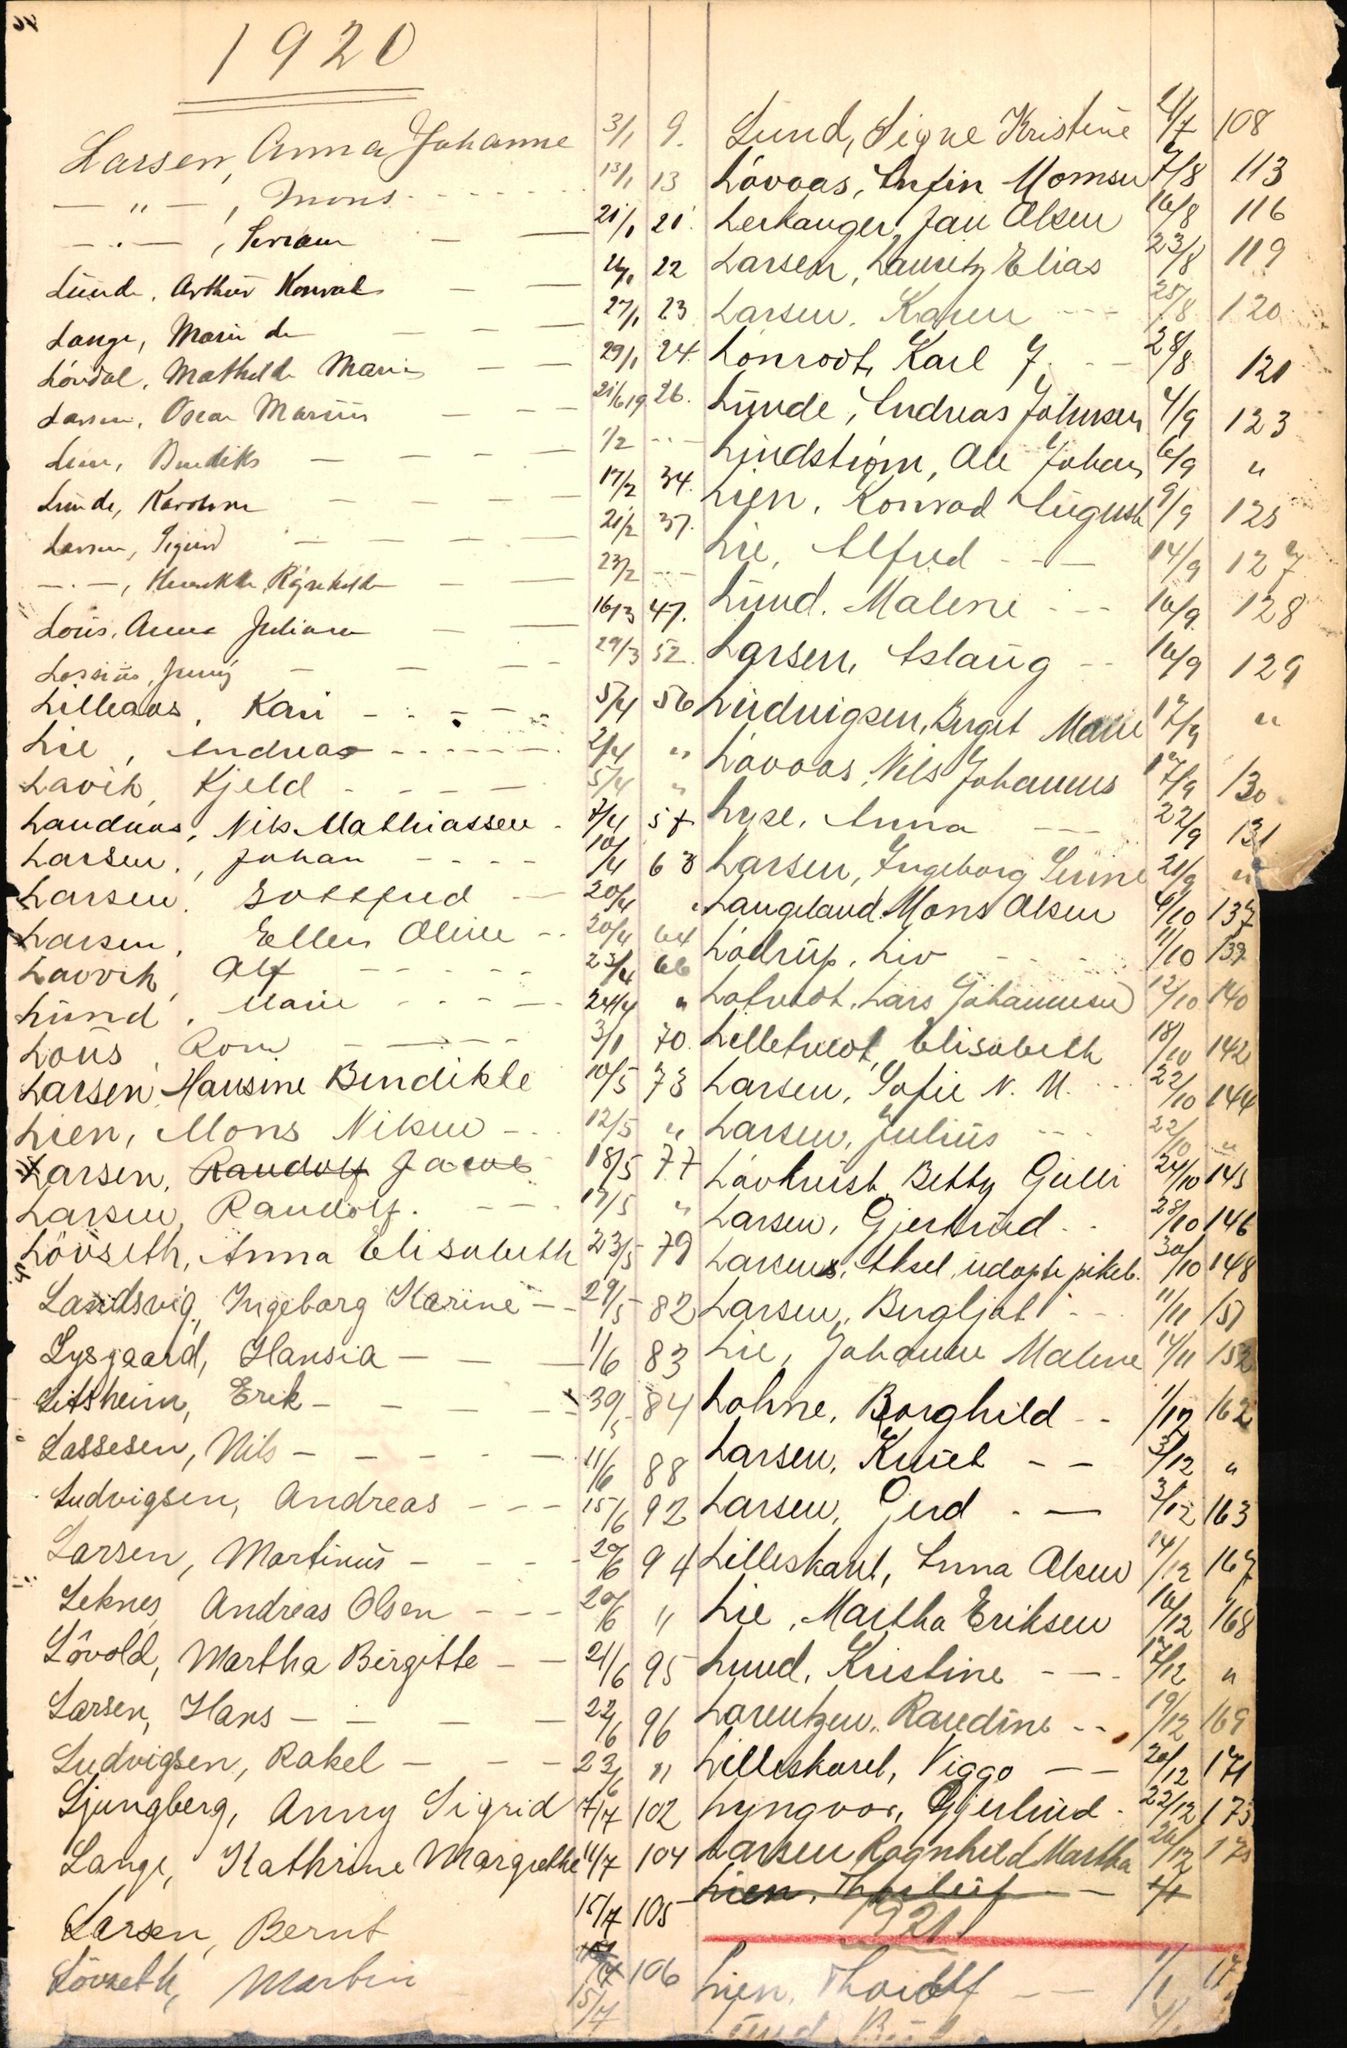 1920
Larsen, Anna Johanne 3/1 9.
— " — , Mons 13/1 13
— . — , 21/1 21
Lunde, Arthur Konrad 22
Lange, Marie de 27/1 23
Lövdal, Mathilde Marie 29/1 24.
Larsen, Oscar Marius 21/6 19 26.
Lien, Bendiks 1/2
Lunde, Karoline 17/2 34.
Larsen, Sigurd 21/2 37.
— . — , Henrikke Ragnhilde 23/2
Loüs, Anna Juliane 16/3 47.
Lossius, Jenny 29/3 52.
Lilleaas, Kari 5/4 56
Lie, Andreas 2/4 "
Lavik, Kjeld 5/4 "
Landaas, Nils Mathiassen 7/4 57
Larsen, Johan 10/4 63
Larsen, Gottfred 20/4 "
Larsen, Ellen Oline 20/4 64
Lavvik, Alf 23/4 66
Lund, Marie 24/4 "
Loüs, 3/1 70.
Larsen, Hansine Bendikte 10/5 73
Lien, Mons Nilsen 12/5 "
Larsen, Randolf Jacob 18/5 77
Larsen, Randolf. 17/5 "
Lövseth, Anna Elisabeth 23/5 79
Landsvig, Ingeborg Karine 29/5 82
Lysgaard, Hansia 1/6 83
Litsheim, Erik 30/5 84
Lassesen, Nils 11/6 88
Ludvigsen, Andreas 15/6 92
Larsen, Martinus 20/6 94
Leknes, Andreas Olsen 20/6 "
Lövold, Martha Birgitte 21/6 95
Larsen, Hans 22/6 96
Ludvigsen, Rakel 23/6 "
Ljungberg, Anny Sigrid 7/7 102
Lange, Kathrine Margrethe 11/7 104
Larsen, Bernt 15/7 105
Lövseth, Martin 15/7 106
Lund, Signe Kristine 2/7 108
Lövaas, Enfin Monsen 7/8 113
Lerhanger, Jan Olsen 16/8 116
Larsen, Lauritz Elias 23/8 119
Larsen, Karen 25/8 120
Lönrodt, Karl J. 28/8 121
Lunde, Andreas Johnsen 4/9 123
Lindström, Ole Johan 6/9 "
Lien, Konrad August 9/9 125
Lie, Alfred 14/9 127
Lund, Malene 16/9 128
Larsen, Aslaug 16/9 129
Ludvigsen, Birgit Marie 17/9 "
Lövaas, Nils Johannes 17/9 130
Lyse, Anna 22/9 131
Larsen, Ingeborg Serine 21/9 "
Langeland, Mons Olsen 6/10 137
Lödrup, Liv 11/10 139
Lofveidt, Lars Johannesen 12/10 140
Lilletvedt, Elisabeth 18/10 142
Larsen, Sofie N. M. 22/10 144
Larsen, Julius 22/10 "
Lövkvist, Betty Gulli 24/10 145
Larsen, Gjertrud 28/10 146
Larsens, Aksel, udøpte pikeb. 30/10 148
Larsen, Bergljot 11/11 151
Lie, Johanne Malene 14/11 152
Lohne, Borghild 1/12 162
Larsen, Knut 3/12 "
Larsen, Gerd 3/12 163
Lilleskaret, Anna Olsen 14/12 167
Lie, Martha Eriksen 16/12 168
Lund, Kristine 17/12 "
Lorentzen, Randine 19/12 169
Lilleskaret, Viggo 20/12 171
Lyngvor, Gjertrud 22/12 173
Larsen Ragnhild Martha 26/12 175
Lien, Thorleif
1921
Lien, Thoralf 1/1 17